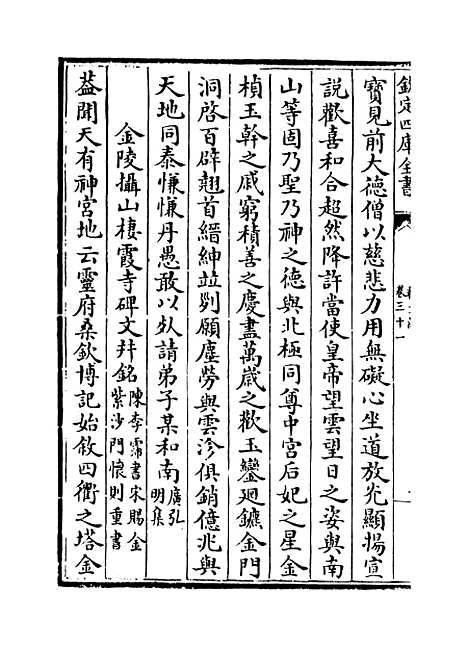 欽定四庫全書
卷三十一
寳見前大德僧以慈悲力用無礙心坐道放光顯揚宣
說歡喜和合超然降許當使皇帝望雲望日之姿與南
山等固乃聖乃神之德與北極同尊中宮后妃之星金
楨玉幹之戚窮積善之慶盡萬歲之歡玉鑾迴鑣金門
洞啓百辟翹首縉紳竝列願塵勞與雲沴俱銷億兆與
天地同泰慊慊丹愚敢以奺請弟子某和南廣弘明集
金陵攝山棲霞寺碑文幷銘陳李霈書宋賜金紫沙門懷則重書
葢聞天有神宮地云靈府桑欽博記始敘四衢之塔金